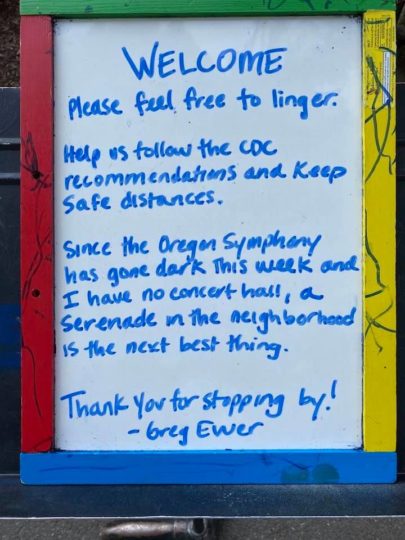 WELCOME
Please feel free to linger.
Help us follow the CDC
recommendations and Keep
Safe distances.
Since the Oregon Symphony
has gone dark this week and
I have no concert hall, a
Serenade in the neighborhood
is the next best thing.
Thank You for stopping by!
- Greg Ewer